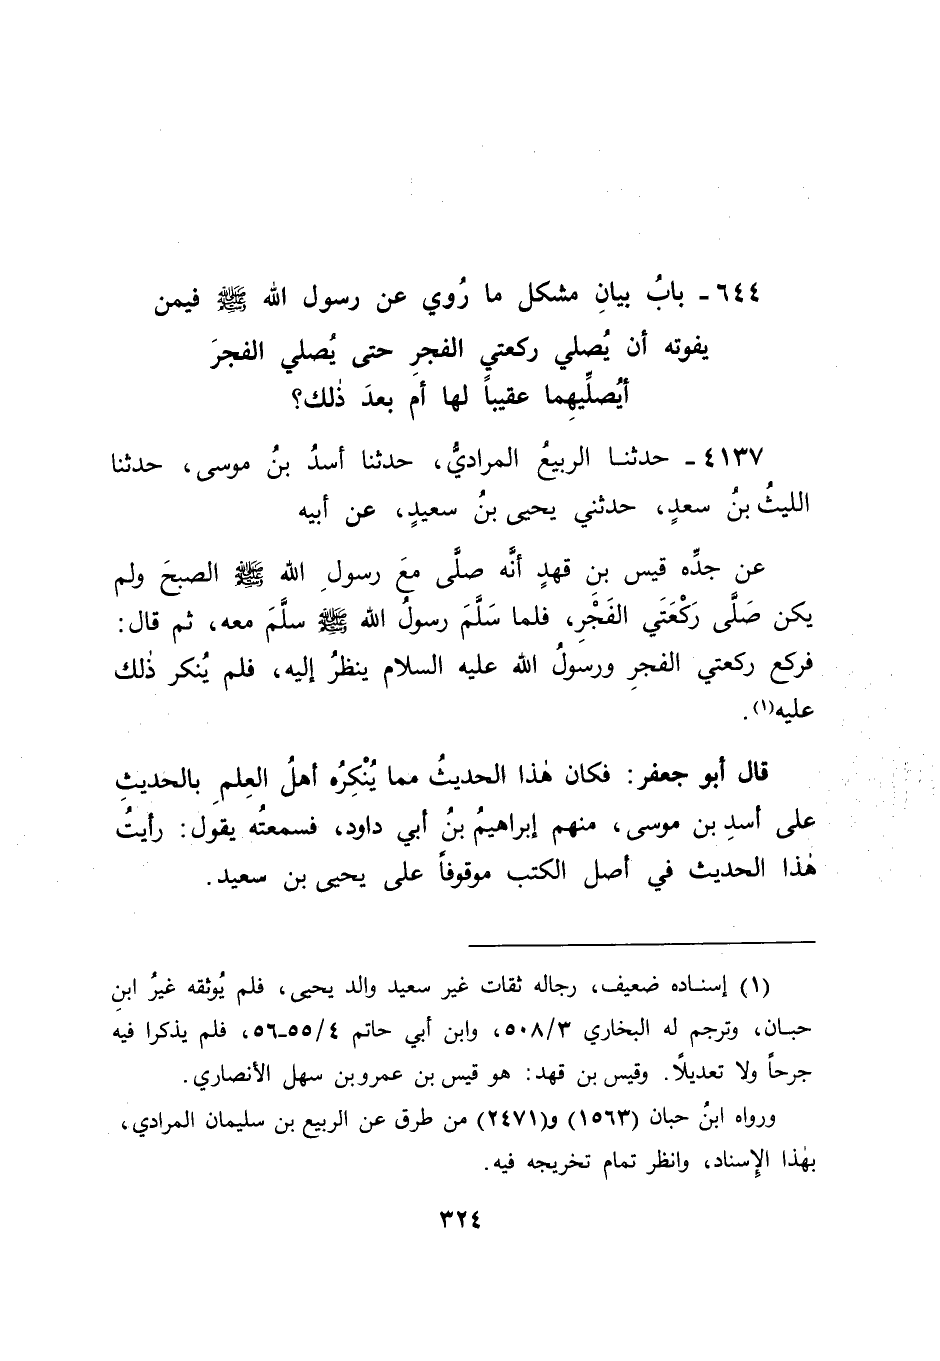 ٦٤٤ - بابُ بيانِ مشكل ما رُوي عن رسول الله ﷺ فيمن
يفوته أن يُصلي ركعتي الفجرِ حتى يُصلي الفجرَ
أيُصلِّيهِما عقيباً لها أم بعدَ ذٰلك؟
٤١٣٧ - حدثنا الربيعُ المراديُّ، حدثنا أسدُ بنُ موسى، حدثنا
الليثُ بنُ سعدٍ، حدثني يحيى بنُ سعيدٍ، عن أبيه
عن جدِّه قيس بنِ قهدٍ أنَّه صلَّى معَ رسولِ الله ﷺ الصبحَ ولم
يكن صَلَّى رَكْعَتَي الفَجْرِ، فلما سَلَّمَ رسولُ الله ﷺ سلَّمَ معه، ثم قال:
فركع ركعتي الفجرِ ورسولُ الله عليه السلام ينظرُ إليه، فلم يُنكر ذٰلك
عليه(١).
قال أبو جعفر: فكان هٰذا الحديثُ مما يُنْكِرُه أهلُ العِلمِ بالحديثِ
على أسدِ بن موسى، منهم إبراهيمُ بنُ أبي داود، فسمعتُه يقول: رأيتُ
هٰذا الحديث في أصل الكتب موقوفاً على يحيى بن سعيد.
(١) إسناده ضعيف، رجاله ثقات غير سعيد والد يحيى، فلم يُوثقه غيرُ ابنِ
حبان، وترجم له البخاري ٥٠٨/٣، وابن أبي حاتم ٥٥/٤-٥٦، فلم يذكرا فيه
جرحاً ولا تعديلًا. وقيس بن قهد: هو قيس بن عمرو بن سهل الأنصاري.
ورواه ابنُ حبان (١٥٦٣) و(٢٤٧١) من طرق عن الربيع بن سليمان المرادي،
بهٰذا الإسناد، وانظر تمام تخريجه فيه.
٣٢٤